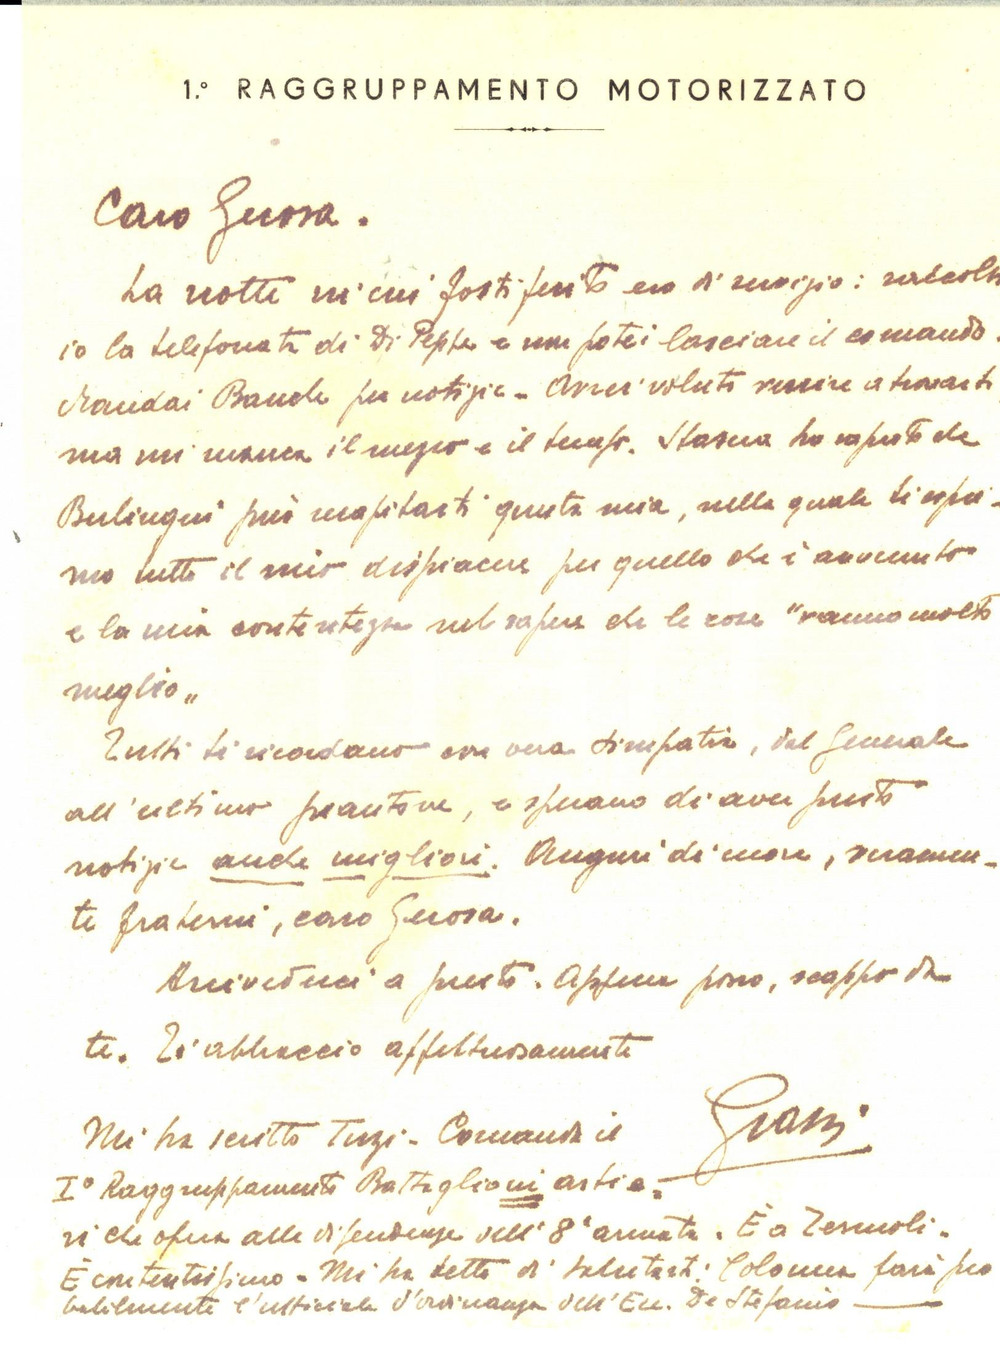 1.º RAGGRUPPAMENTO MOTORIZZATO
Caro Gerosa.
La notte in cui fosti ferito ero di servizio: raccolsi
io la telefonata di Di Peppe e non potei lasciare il comando.
Mandai Bande per notizie. Avrei voluto venire a trovarti
ma mi manca il mezzo e il tempo. Stasera ho saputo che
Berlingeri può recapitarti questa mia, nella quale ti espri-
mo tutto il mio dispiacere per quello che è avvenuto
e la mia contentezza nel sapere che le cose "vanno molto
meglio"
Tutti ti ricordano con vera simpatia, dal Generale
all'ultimo piantone, e sperano di aver presto
notizie anche migliori. Auguri di cuore, veramen-
te fraterni, caro Gerosa.
Arrivederci a presto. Appena posso, scappo da
te. Ti abbraccio affettuosamente
Grassi
Mi ha scritto Tuzi. Comanda il
I° Raggruppamento Battaglioni artie-
ri che opera alle dipendenze dell'8ª armata. È a Termoli.
È contentissimo. Mi ha detto di salutarti. Colonna farà pro
babilmente l'ufficiale d'ordinanza dell'Ecc. De Stefanis